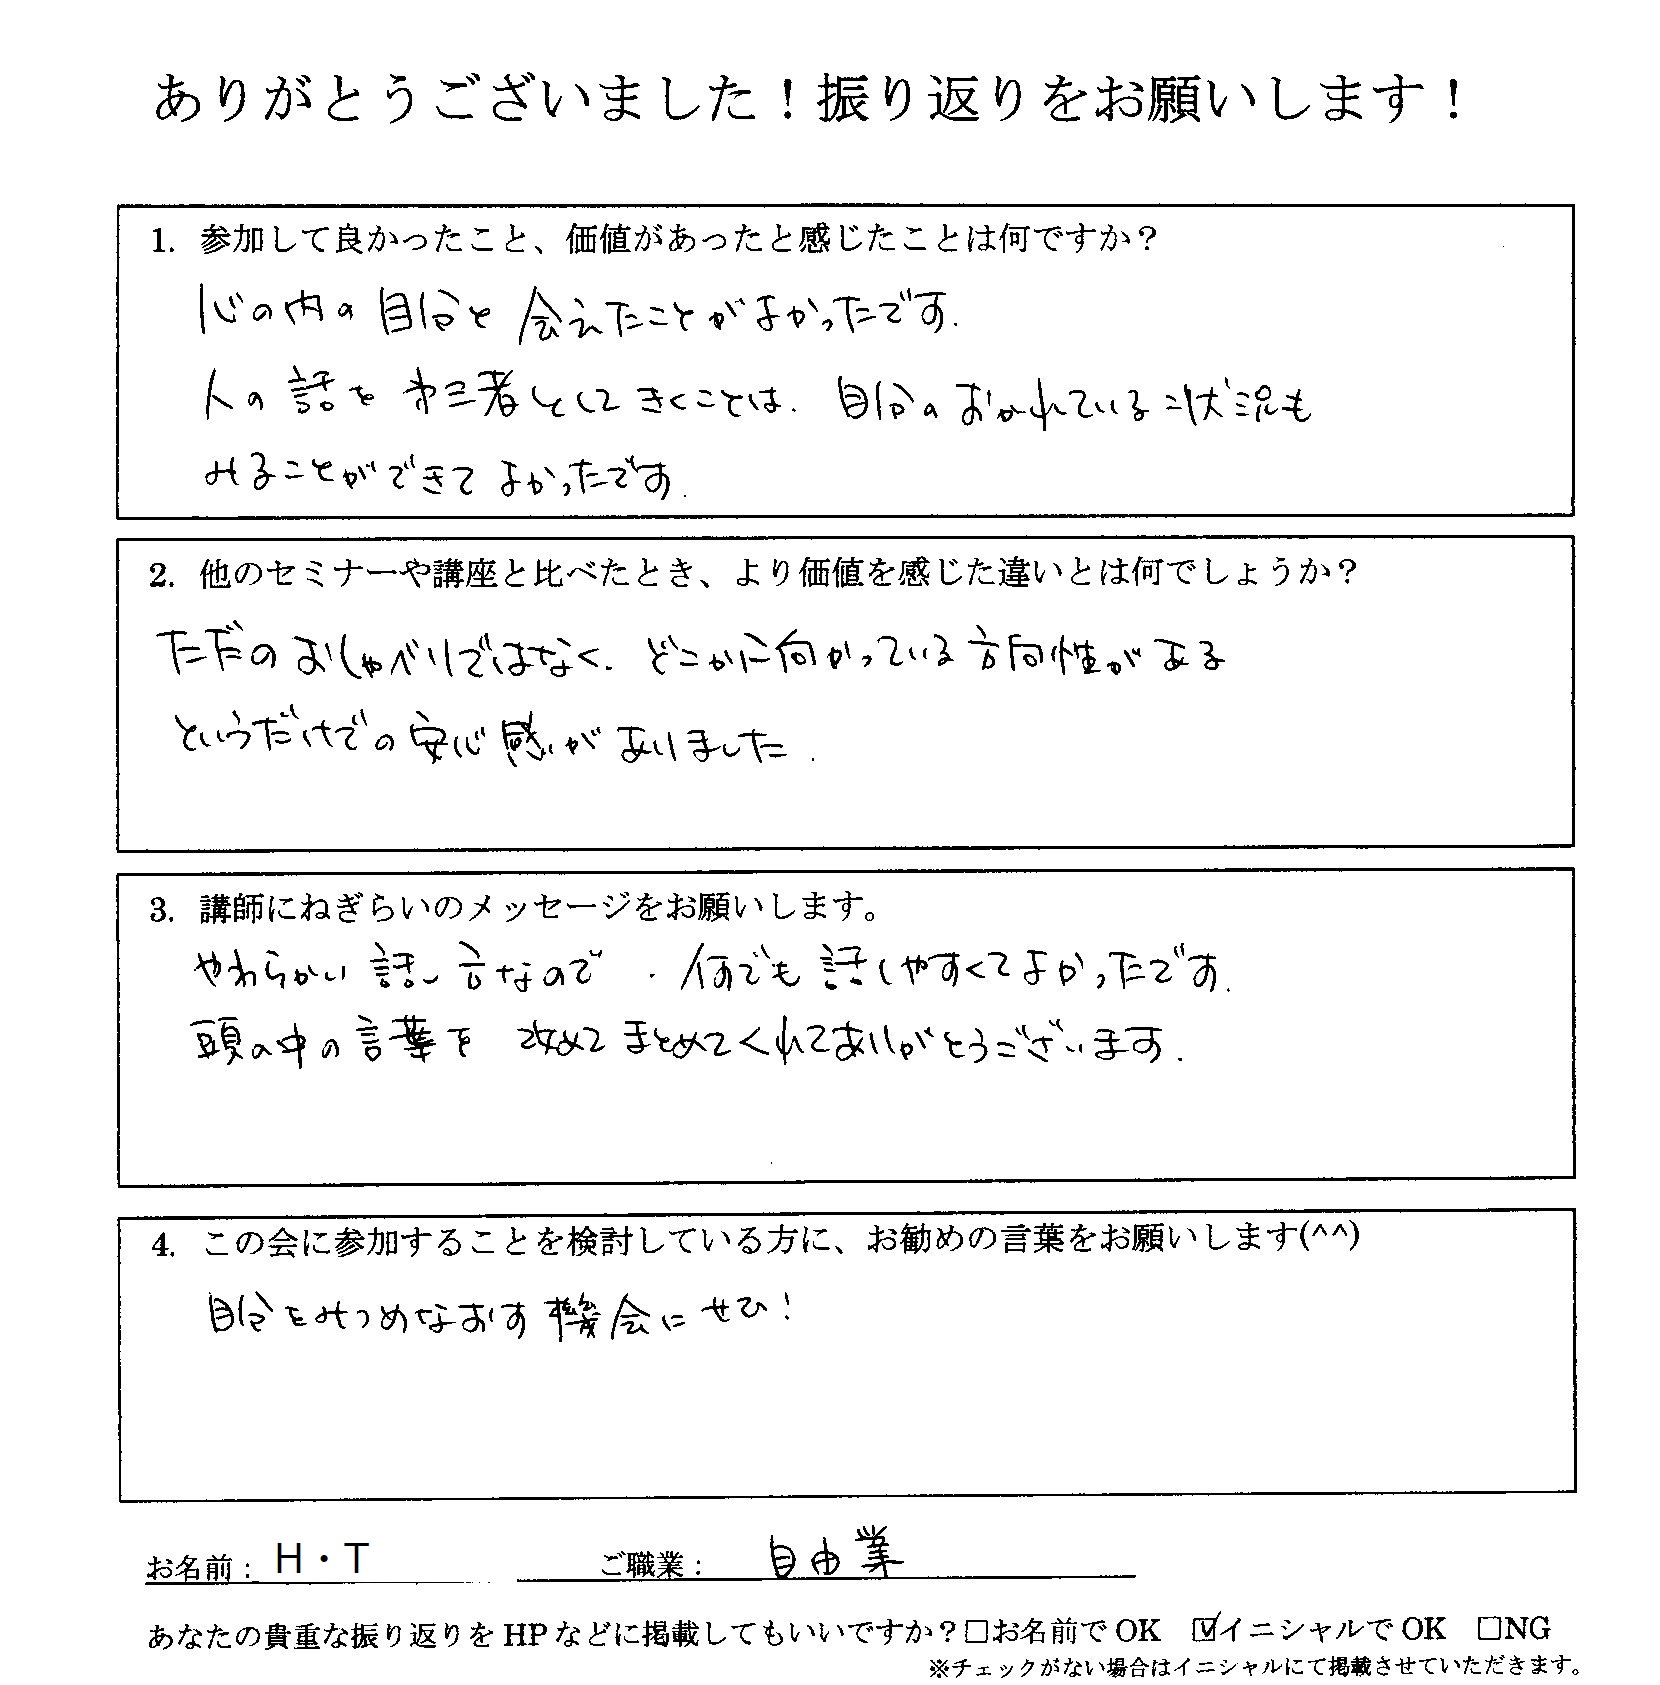 ありがとうございました！振り返りをお願いします！
1. 参加して良かったこと、価値があったと感じたことは何ですか？
心の内の自分と会えたことがよかったです.
人の話を第三者としてきくことは. 自分のおかれている状況も
みることができてよかったです.
2. 他のセミナーや講座と比べたとき、より価値を感じた違いとは何でしょうか？
ただのおしゃべりではなく. どこかに向かっている方向性がある
というだけでの安心感がありました.
3. 講師にねぎらいのメッセージをお願いします。
やわらかい話し方なので. 何でも話しやすくてよかったです.
頭の中の言葉を改めてまとめてくれてありがとうございます.
4. この会に参加することを検討している方に、お勧めの言葉をお願いします(^^)
自分をみつめなおす機会にぜひ！
お名前： H・T ご職業： 自由業
あなたの貴重な振り返りを HP などに掲載してもいいですか？□お名前で OK ☑イニシャルで OK □NG
※チェックがない場合はイニシャルにて掲載させていただきます。